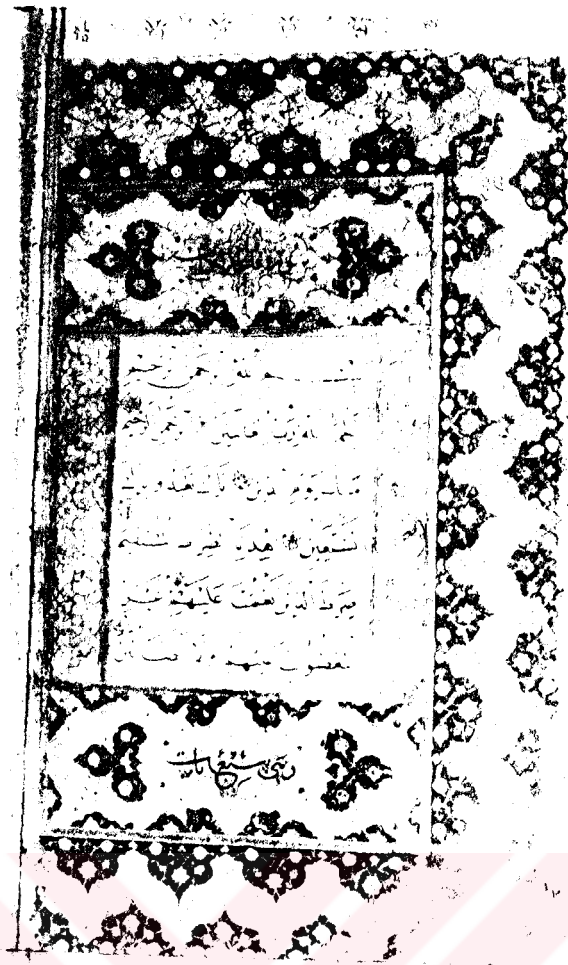 بسم الله الرحمن الرحيم
الحمد لله رب العالمين الرحمن الرحيم
مالك يوم الدين إياك نعبد وإياك
نستعين اهدنا الصراط المستقيم
صراط الذين أنعمت عليهم غير
المغضوب عليهم ولا الضالين
وهي سبع آيات